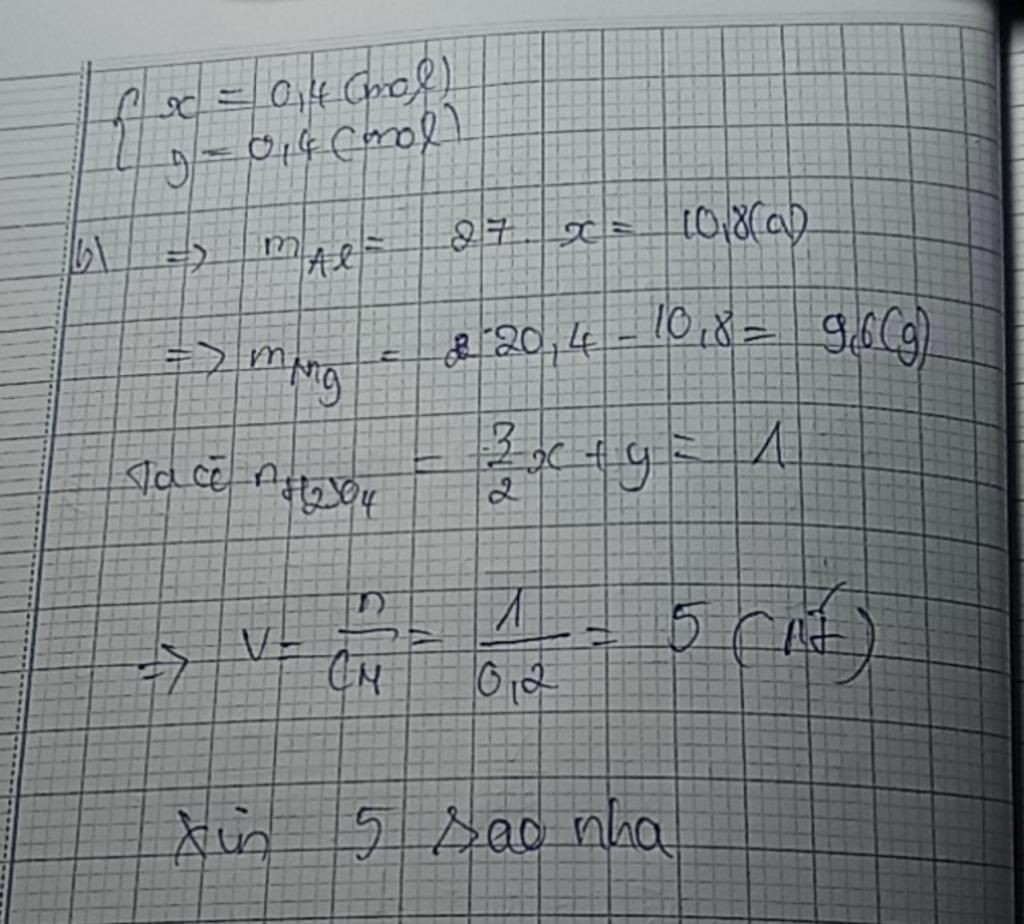 { x = 0,4 (mol)
y = 0,4 (mol)
b) => mAl = 27 x = 10,8(g)
=> mMg = 20,4 - 10,8 = 9,6(g)
Ta có nH2SO4 = 3/2 x + y = 1
=> V = n/CM = 1/0,2 = 5 (lít)
Xin 5 sao nha